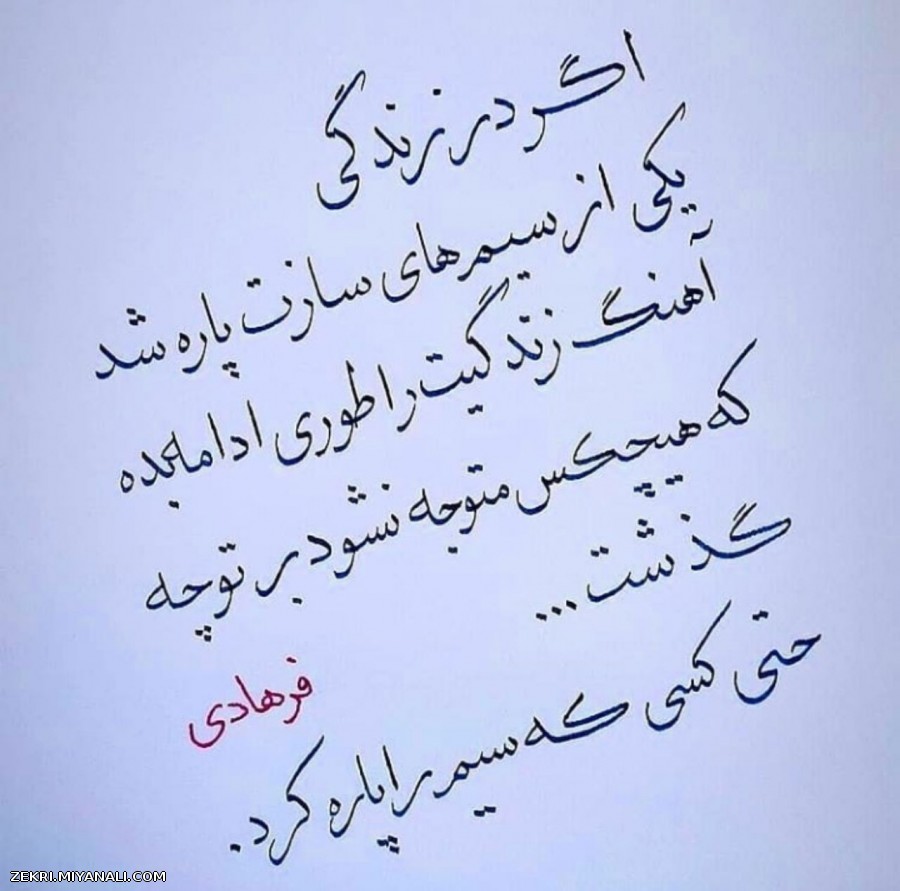 اگر در زندگی
یکی از سیم‌های سازت پاره شد
آهنگ زندگیت را طوری ادامه بده
که هیچکس متوجه نشود بر تو چه
گذشت...
حتی کسی که سیم را پاره کرد.
فرهادی
ZEKRI.MIYANALI.COM